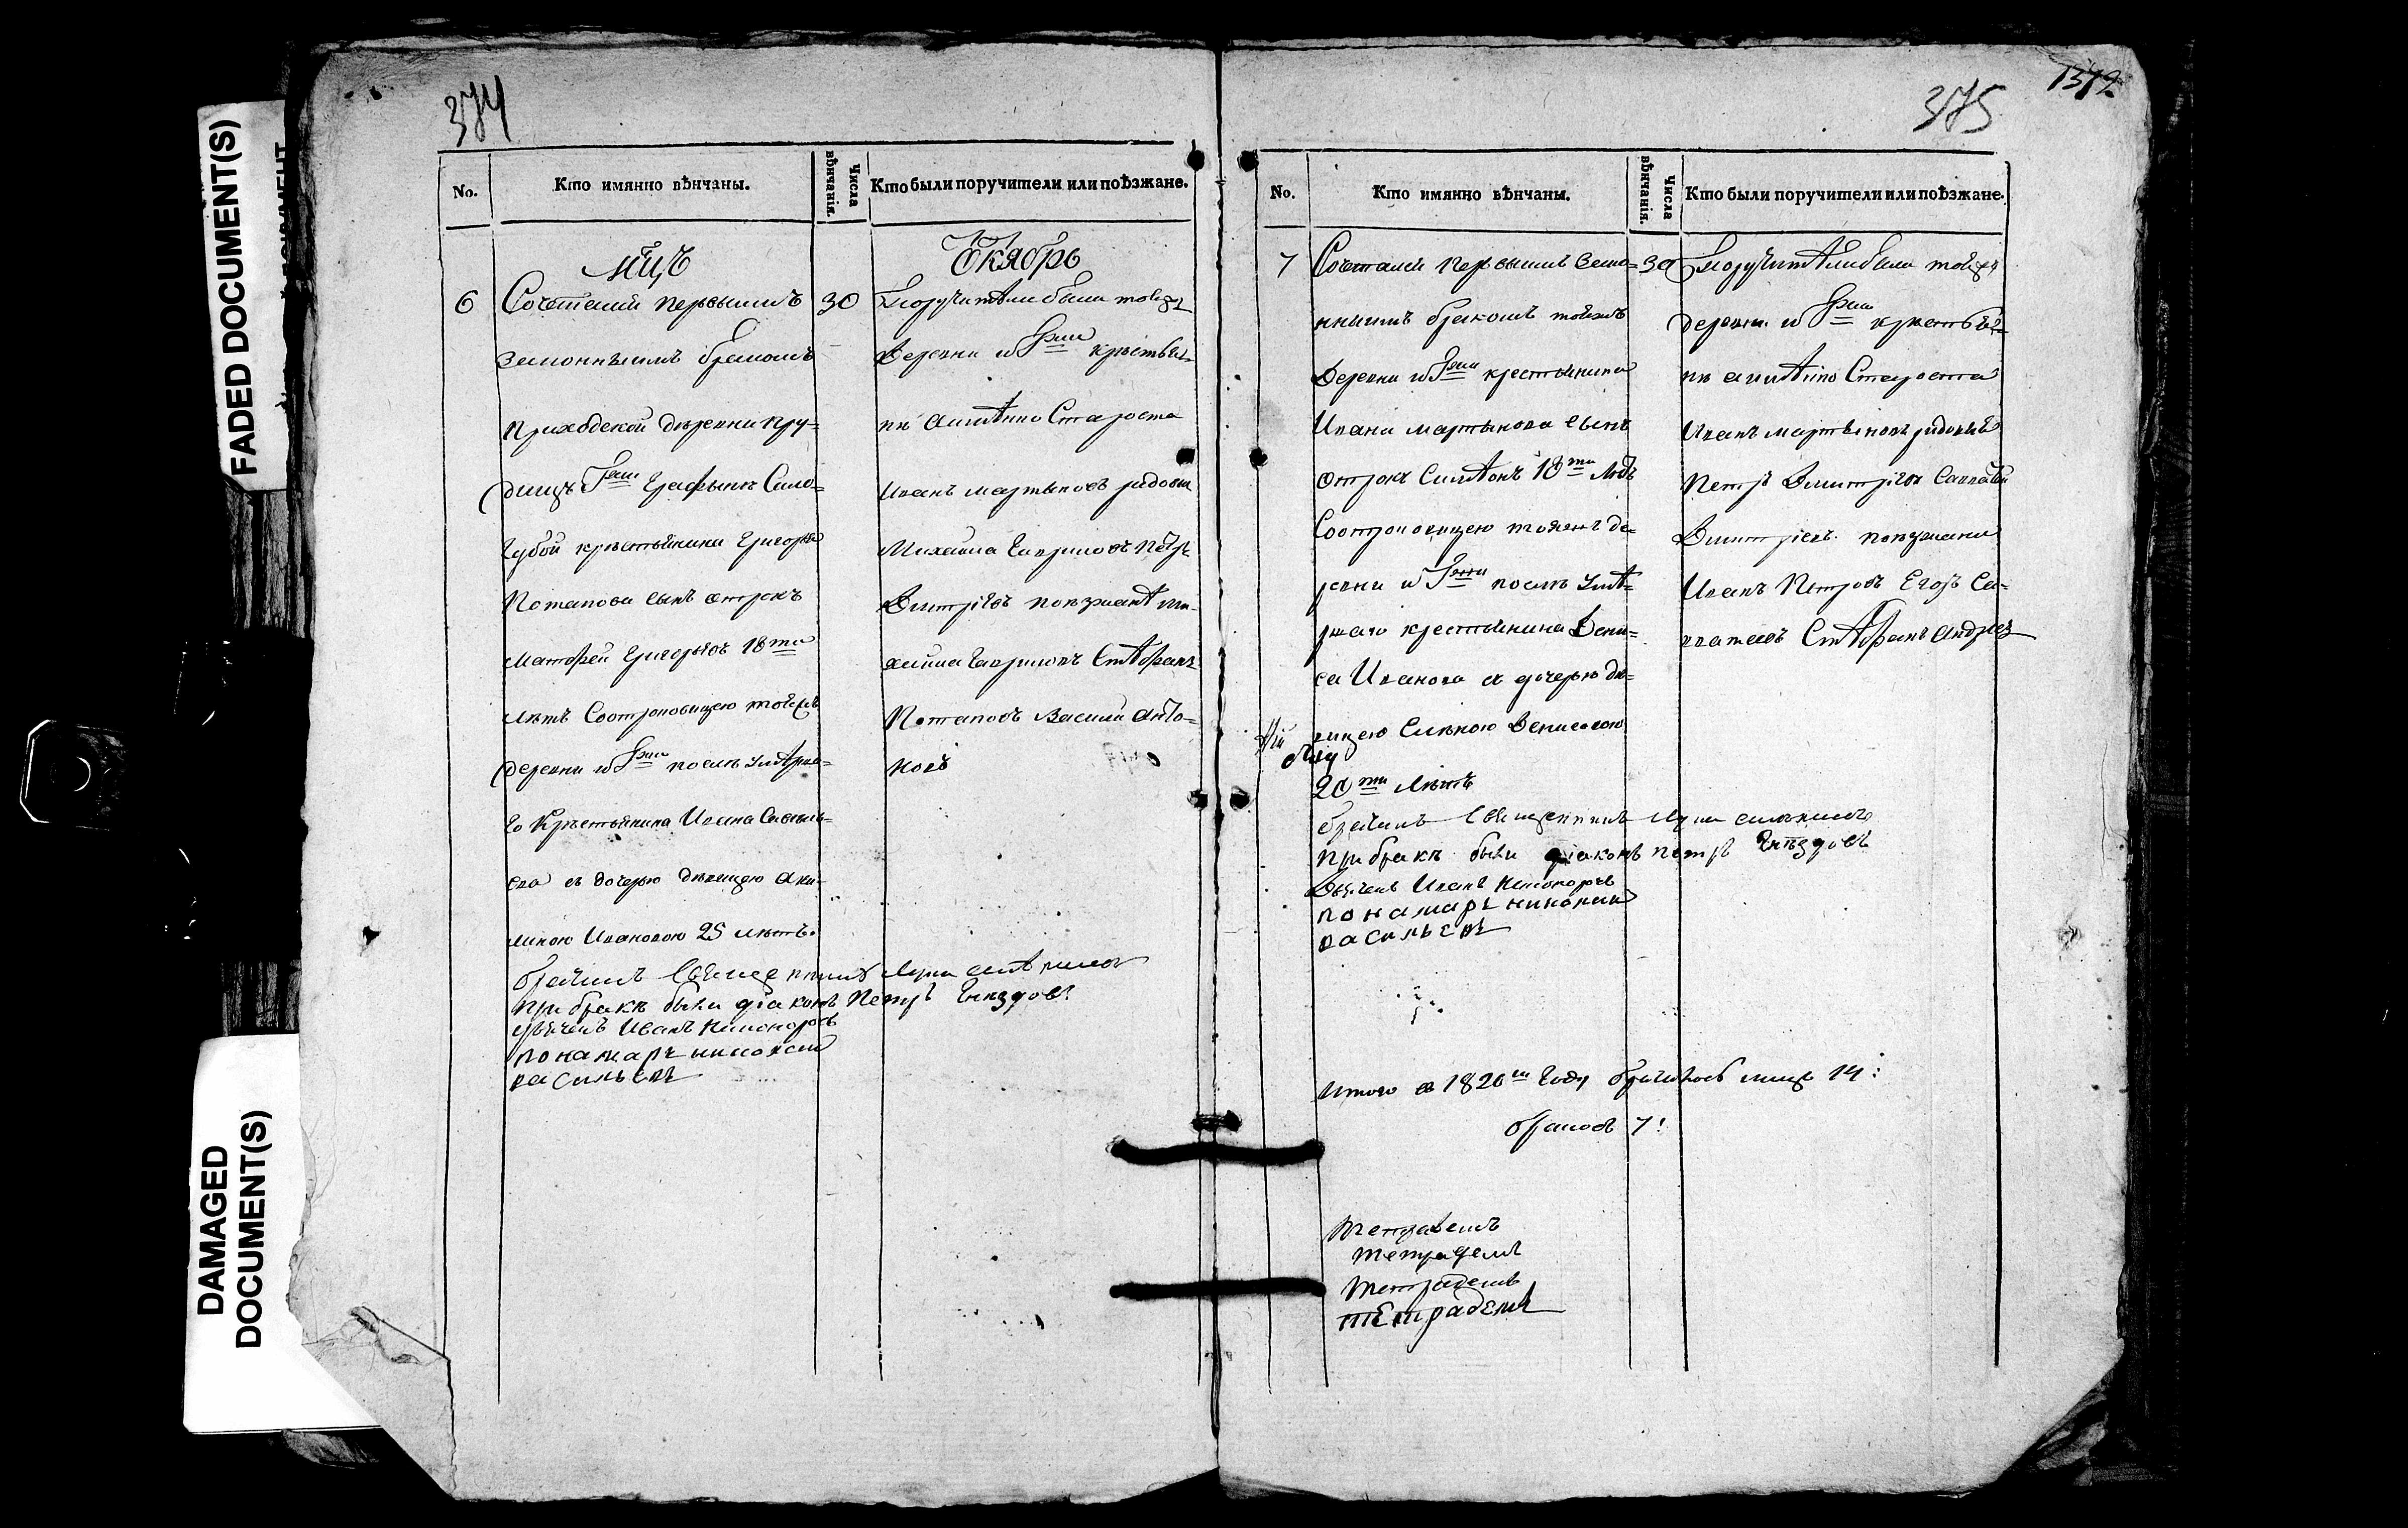 FADED DOCUMENT(S)
DAMAGED
DOCUMENT(S)
374
No.
Кто имянно вѣнчаны.
Числа вѣнчанія.
Кто были поручители или поѣзжане.
мц̃ъ Октябрь
6
Сочетанъ первымъ
законнымъ бракомъ
приходской деревни Пру=
дищъ Гжи Графини Сало=
губой крестьянина Григорья
Потапова сынъ отрокъ
Матфей Григорьевъ 18ти
лѣтъ Соотроковицею тойжъ
деревни и Гжи послѣ умерша=
го Крестьянина Ивана Савель=
ева съ дочерью девицею Аку=
линою Ивановою 25 лѣтъ.
30
Поручители были тойже
деревни и Гжи крестьян=
не имянно Староста
Иванъ Мартыновъ рядовыя
Михаила Гавриловъ Петръ
Дмитріевъ поезжане Ми=
хайла Гавриловъ Стефанъ
Потаповъ Василий Анто=
новъ
бракъ священникъ Лука
При бракѣ были діаконъ Петръ Гнездовъ
дьячекъ Иванъ Никоноровъ
понамарь Николай
Васильевъ
375
1372
No.
Кто имянно вѣнчаны.
Числа вѣнчанія.
Кто были поручители или поѣзжане.
7
Сочетанъ первымъ зако=
ннымъ бракомъ тойжъ
деревни и Гжи крестьянина
Ивана Мартынова сынъ
отрокъ Симеонъ 18ти лѣтъ
Соотроковицею тояжъ де=
ревни и Гжи послѣ уме=
ршаго крестьянина Дени=
са Иванова съ дочерью де=
вицею Еленою Денисовою
20ти лѣтъ
30
Поручители были тойже
деревни и Гжи крестьян=
не имянно Староста
Иванъ Мартыновъ рядовыя
Петръ Дмитріевъ Савватѣй
Дмитріевъ поезжане
Иванъ Петровъ Егоръ Са=
вватеевъ Стефанъ Андрее
бракъ Священникъ Лука
При бракѣ были діаконъ Петръ Гнездовъ
Дьячекъ Иванъ Никоноровъ
понамарь Николай
Васильевъ
Итого въ 1820м Году лицъ 14:
браковъ 7: